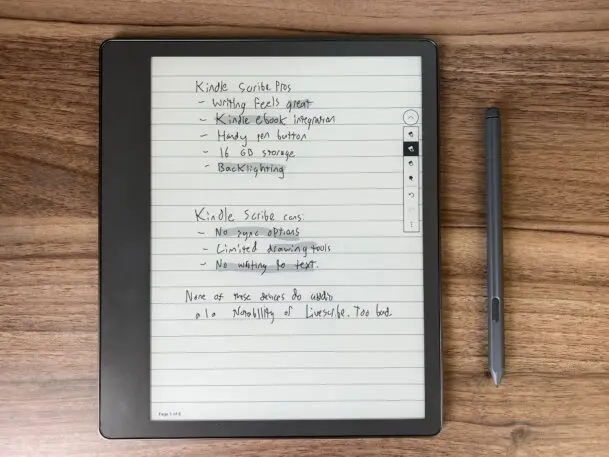 Kindle Scribe Pros
- Writing Feels great
- Kindle ebook Integration
- Handy pen button
- 16 GB storage
- Backlighting
Kindle Scribe cons:
- No sync options
- Limited drawing tools
- No writing to text.
None of these devices do audio
a la Notability or Livescribe. Too bad
Page 5 of 6